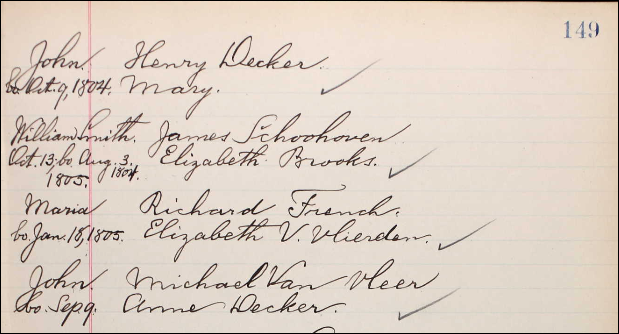 149
John. Henry Decker.
bo. Oct. 9, 1804. Mary.
William Smith. James Schoohoven
Oct. 13. bo. Aug. 3. Elizabeth Brooks.
1805. 1804.
Maria Richard French.
bo. Jan. 18, 1805. Elizabeth V. Vlierden.
John. Michael Van Vleer
bo. Sep. 9. Anne Decker.